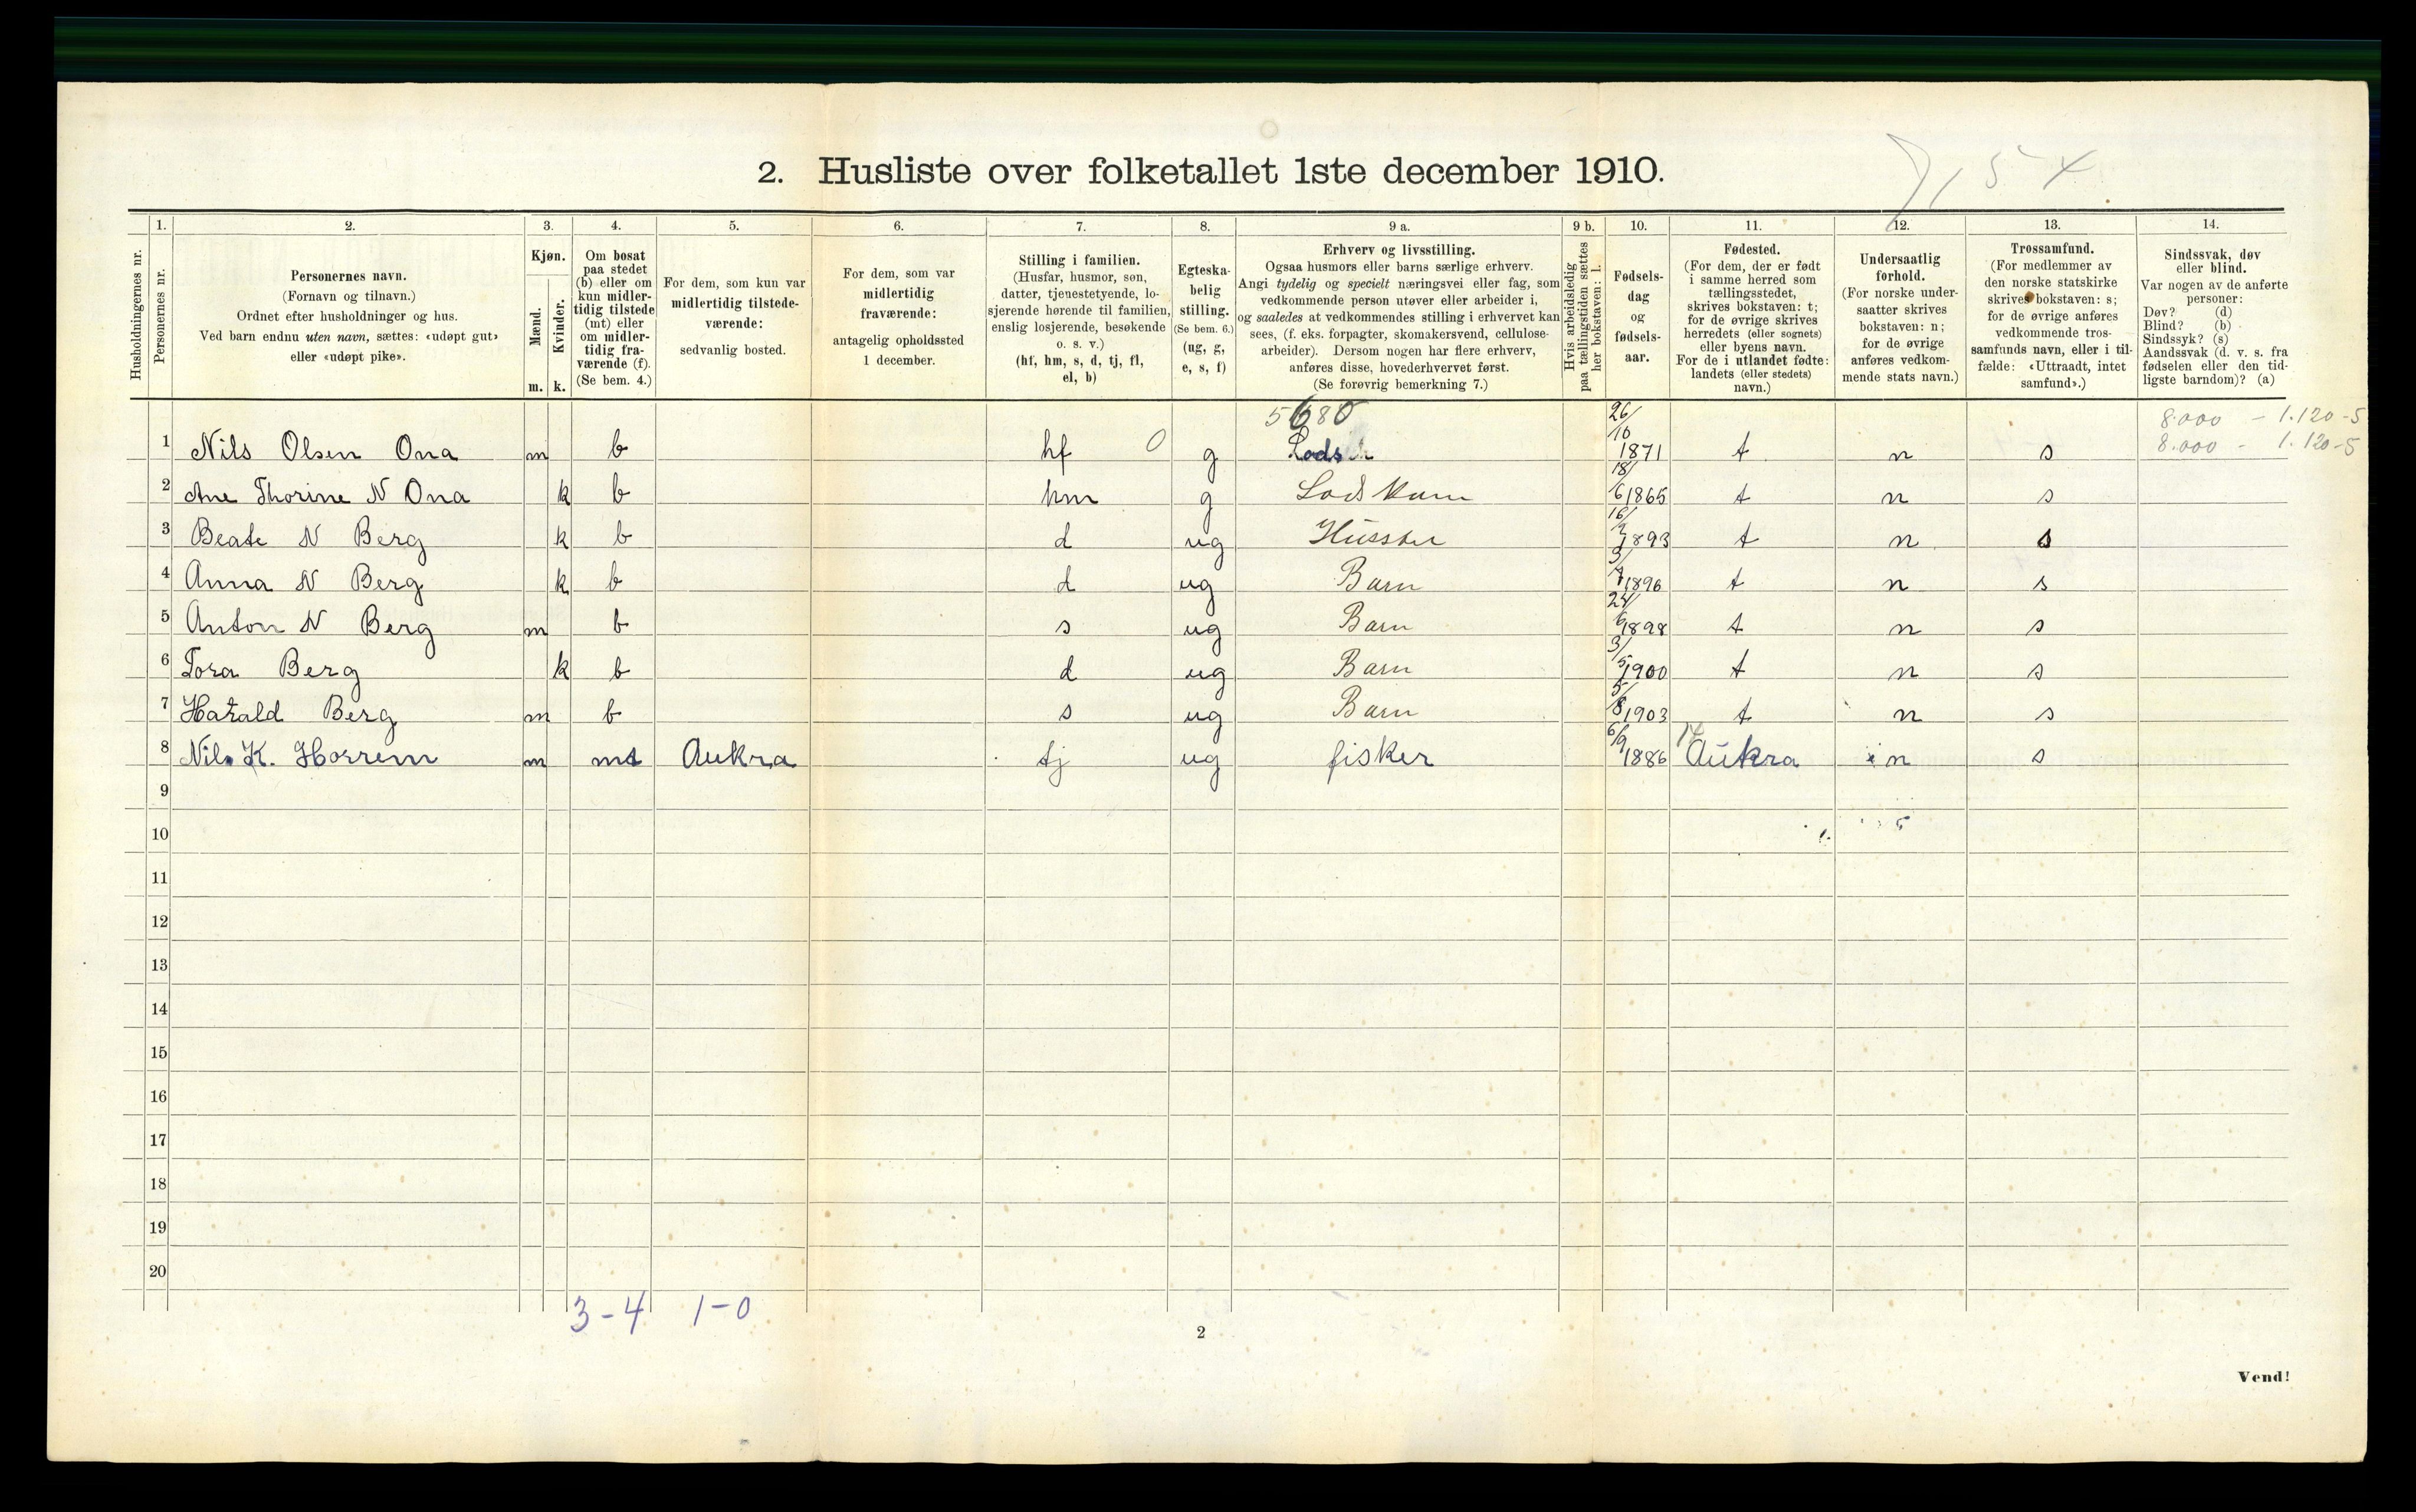 2. Husliste over folketallet 1ste december 1910.
5 4
Husholdningernes nr.
1.
Personernes nr.
2.
Personernes navn.
(Fornavn og tilnavn.)
Ordnet efter husholdninger og hus.
Ved barn endnu uten navn, sættes: «udøpt gut»
eller «udøpt pike».
3.
Kjøn.
Mænd.
Kvinder.
m. k.
4.
Om bosat
paa stedet
(b) eller om
kun midler-
tidig tilstede
(mt) eller
om midler-
tidig fra-
værende (f).
(Se bem. 4.)
5.
For dem, som kun var
midlertidig tilstede-
værende:
sedvanlig bosted.
6.
For dem, som var
midlertidig
fraværende:
antagelig opholdssted
1 december.
7.
Stilling i familien.
(Husfar, husmor, søn,
datter, tjenestetyende, lo-
sjerende hørende til familien,
enslig losjerende, besøkende
o. s. v.)
(hf, hm, s, d, tj, fl,
el, b)
8.
Egteska-
belig
stilling.
(Se bem. 6.)
(ug, g,
e, s, f)
9 a.
Erhverv og livsstilling.
Ogsaa husmors eller barns særlige erhverv.
Angi tydelig og specielt næringsvei eller fag, som
vedkommende person utøver eller arbeider i,
og saaledes at vedkommendes stilling i erhvervet kan
sees, (f. eks. forpagter, skomakersvend, cellulose-
arbeider). Dersom nogen har flere erhverv,
anføres disse, hovederhvervet først.
(Se forøvrig bemerkning 7.)
9 b.
Hvis arbeidsledig
paa tællingstiden sættes
her bokstaven: l.
10.
Fødsels-
dag
og
fødsels-
aar.
11.
Fødested.
(For dem, der er født
i samme herred som
tællingsstedet,
skrives bokstaven: t;
for de øvrige skrives
herredets (eller sognets)
eller byens navn.
For de i utlandet fødte:
landets (eller stedets)
navn.)
12.
Undersaatlig
forhold.
(For norske under-
saatter skrives
bokstaven: n;
for de øvrige
anføres vedkom-
mende stats navn.)
13.
Trossamfund.
(For medlemmer av
den norske statskirke
skrives bokstaven: s;
for de øvrige anføres
vedkommende tros-
samfunds navn, eller i til-
fælde: «Uttraadt, intet
samfund».)
14.
Sindssvak, døv
eller blind.
Var nogen av de anførte
personer:
Døv? (d)
Blind? (b)
Sindssyk? (s)
Aandssvak (d. v. s. fra
fødselen eller den tid-
ligste barndom)? (a)
5680
8.000 - 1.120-5
1 Nils Olsen Ona m b hf 0 g Lods 26/10 1871 t n s 8.000 - 1.120-5
2 Ane Thorine N Ona k b hm g Lods Kum 18/6 1865 t n s
3 Beate N Berg k b d ug 16/ 1893 t n s
4 Anna N Berg k b d ug Barn 3/ 1896 t n s
5 Anton N Berg m b s ug Barn 24/6 1898 t n s
6 Tora Berg k b d ug Barn 3/5 1900 t n s
7 Harald Berg m b s ug Barn 5/8 1903 t n s
8 Nils K. Horrem m mt Aukra tj ug fisker 6/9 1886 Aukra n s
9
10
11
12
13
14
15
16
17
18
19
20
3-4 1-0
2
Vend!